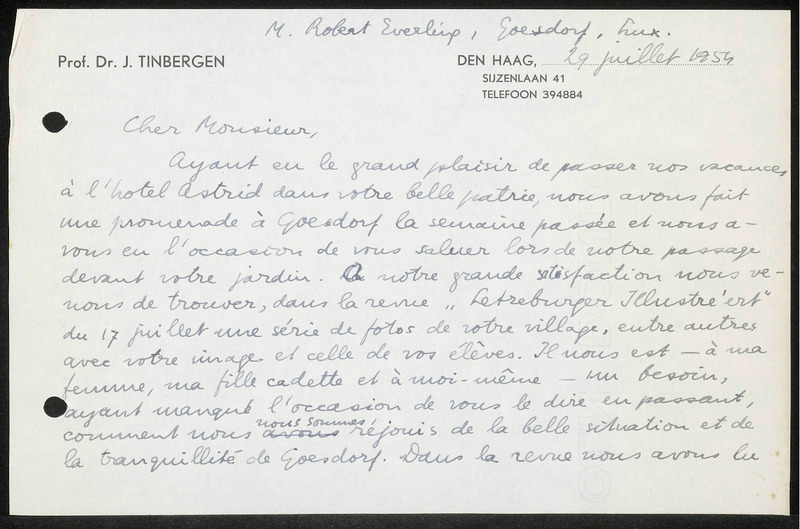 M. Robert Everling, Goesdorf, Lux.
Prof. Dr. J. TINBERGEN
DEN HAAG, 29 juillet 1954
SIJZENLAAN 41
TELEFOON 394884
Cher Monsieur,
Ayant eu le grand plaisir de passer nos vacances
à l'hotel Astrid dans votre belle patrie, nous avons fait
une promenade à Goesdorf la semaine passée et nous a-
vons eu l'occasion de vous saluer lors de notre passage
devant votre jardin. A notre grande satisfaction nous ve-
nons de trouver, dans la revue „Letzeburger Illustré'ert"
du 17 juillet une série de fotos de votre village, entre autres
avec votre image et celle de vos élèves. Il nous est – à ma
femme, ma fille cadette et à moi-même – un besoin,
ayant manqué l'occasion de vous le dire en passant,
comment nous avons nous sommes réjouis de la belle situation et de
la tranquillité de Goesdorf. Dans la revue nous avons lu